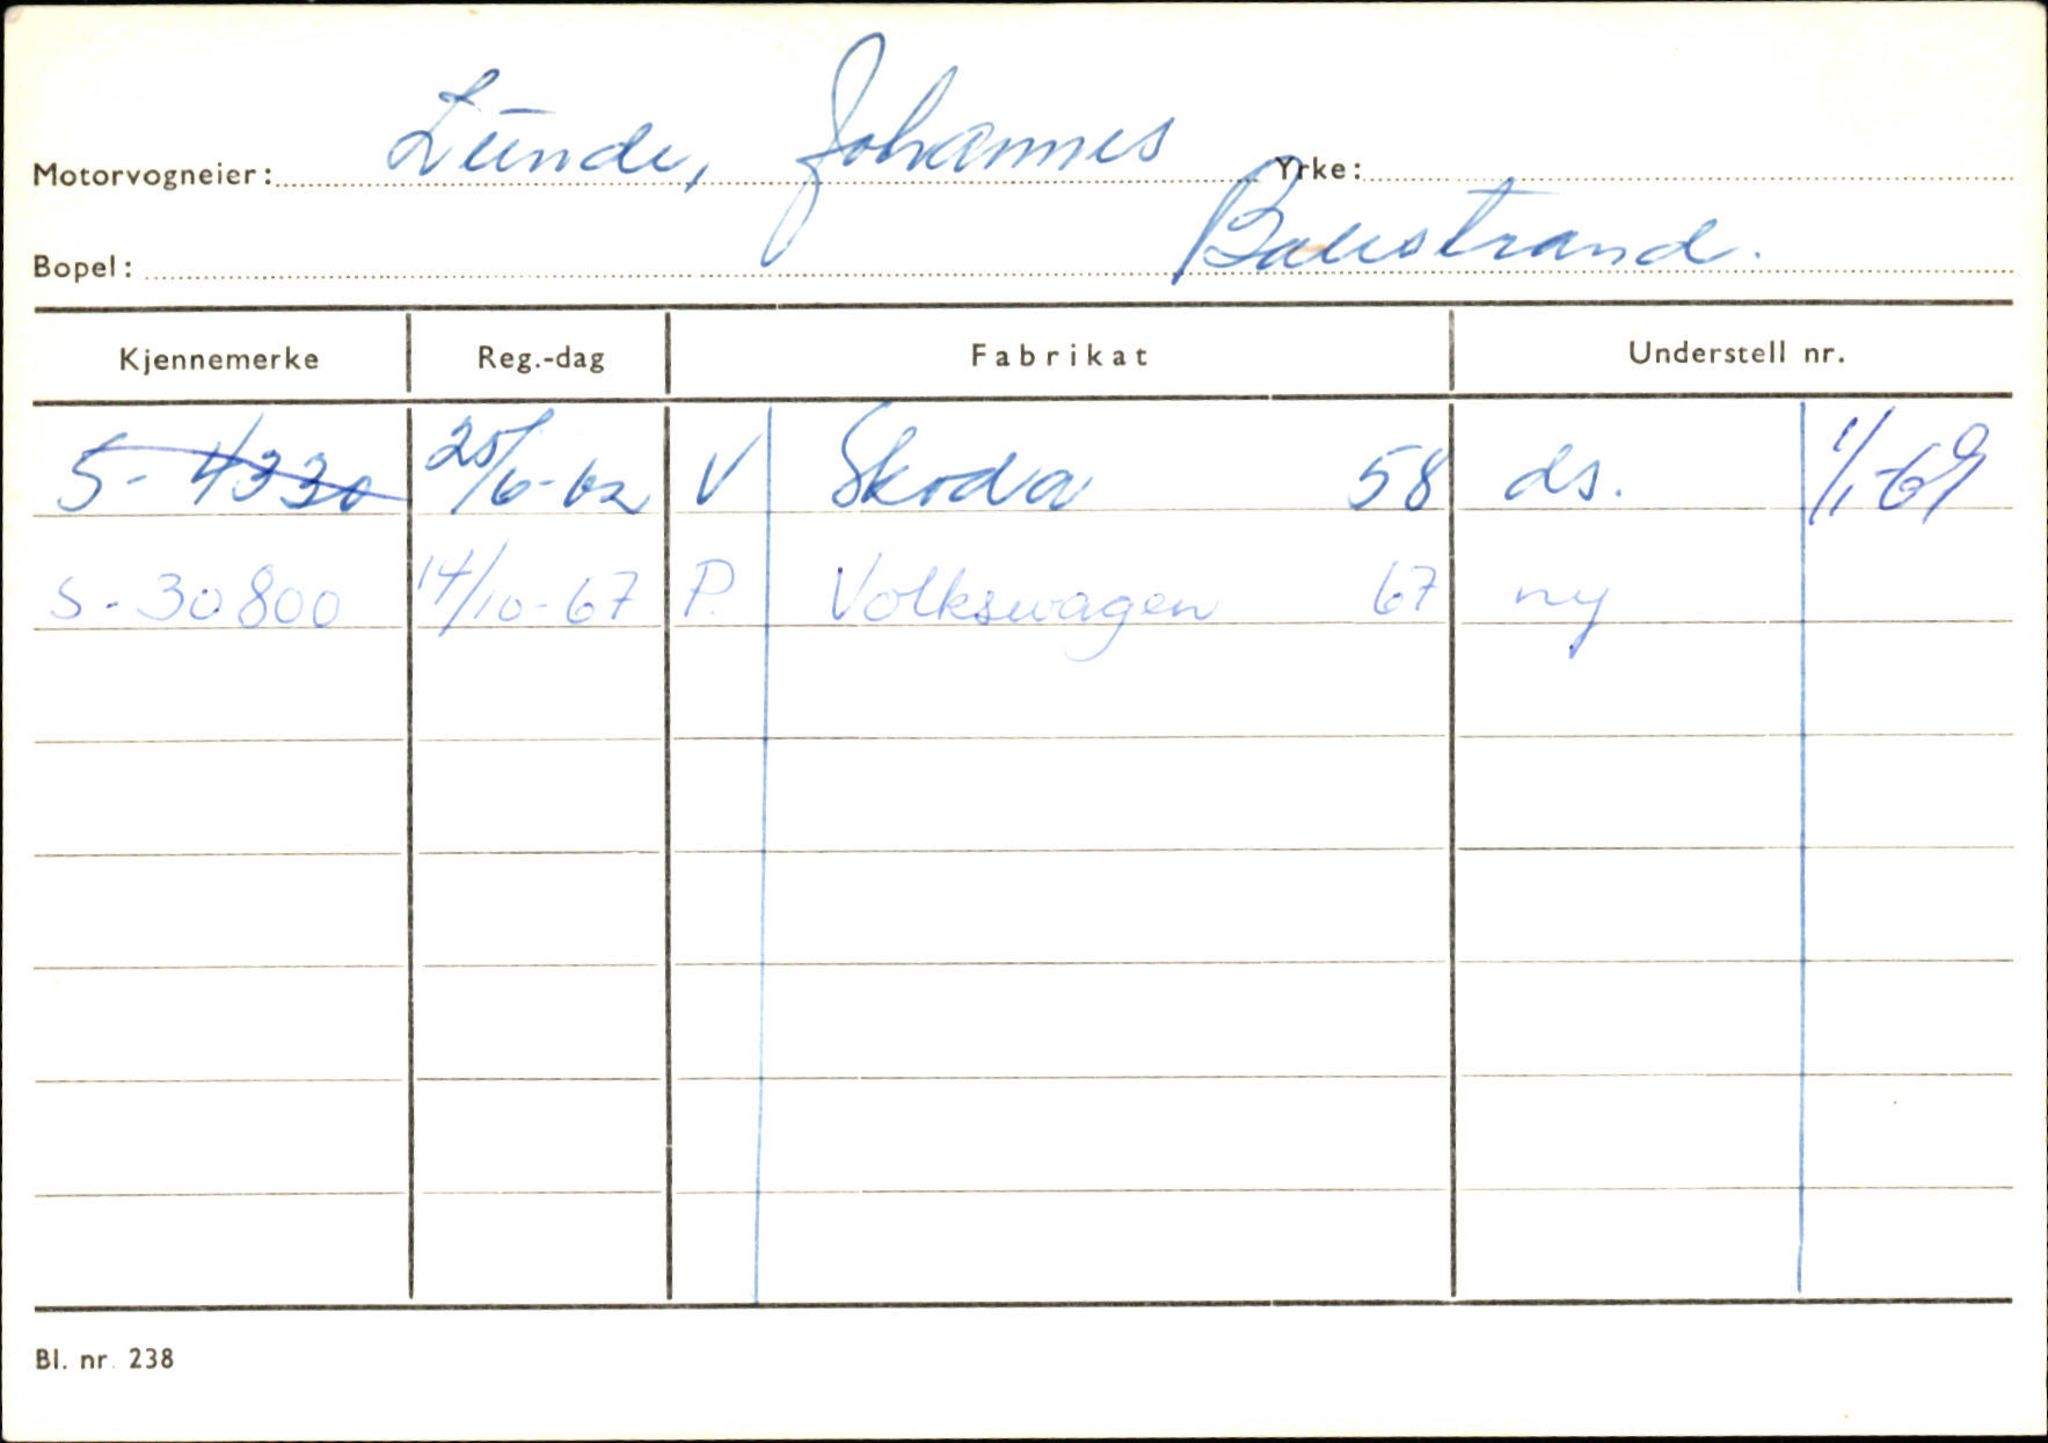 Motorvogneier: Lunde, Johannes Yrke:
Bopel: Balestrand.
Kjennemerke Reg.-dag Fabrikat Understell nr.
S- 4330 25/6-62 V Skoda 58 ds. 1/1-69
S-30800 14/10-67 P. Volkswagen 67 ny
Bl. nr. 238